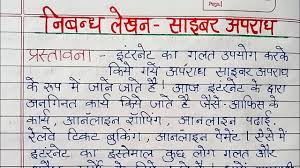 Page
निबन्ध लेखन- साइबर अपराध
प्रस्तावना - इंटरनेट का गलत उपयोग करके
किये गये अपराध साइबर अपराध
के रूप में जाने जाते हैं। आज इंटरनेट के द्वारा
अनगिनत कार्य किये जाते हैं जैसे- ऑफिस के
कार्य, आनलाइन शॉपिंग, आनलाइन पढ़ाई,
रेलवे टिकट बुकिंग, आनलाइन पेमेंट। ऐसे में
इंटरनेट का इस्तेमाल कुछ लोग गलत और